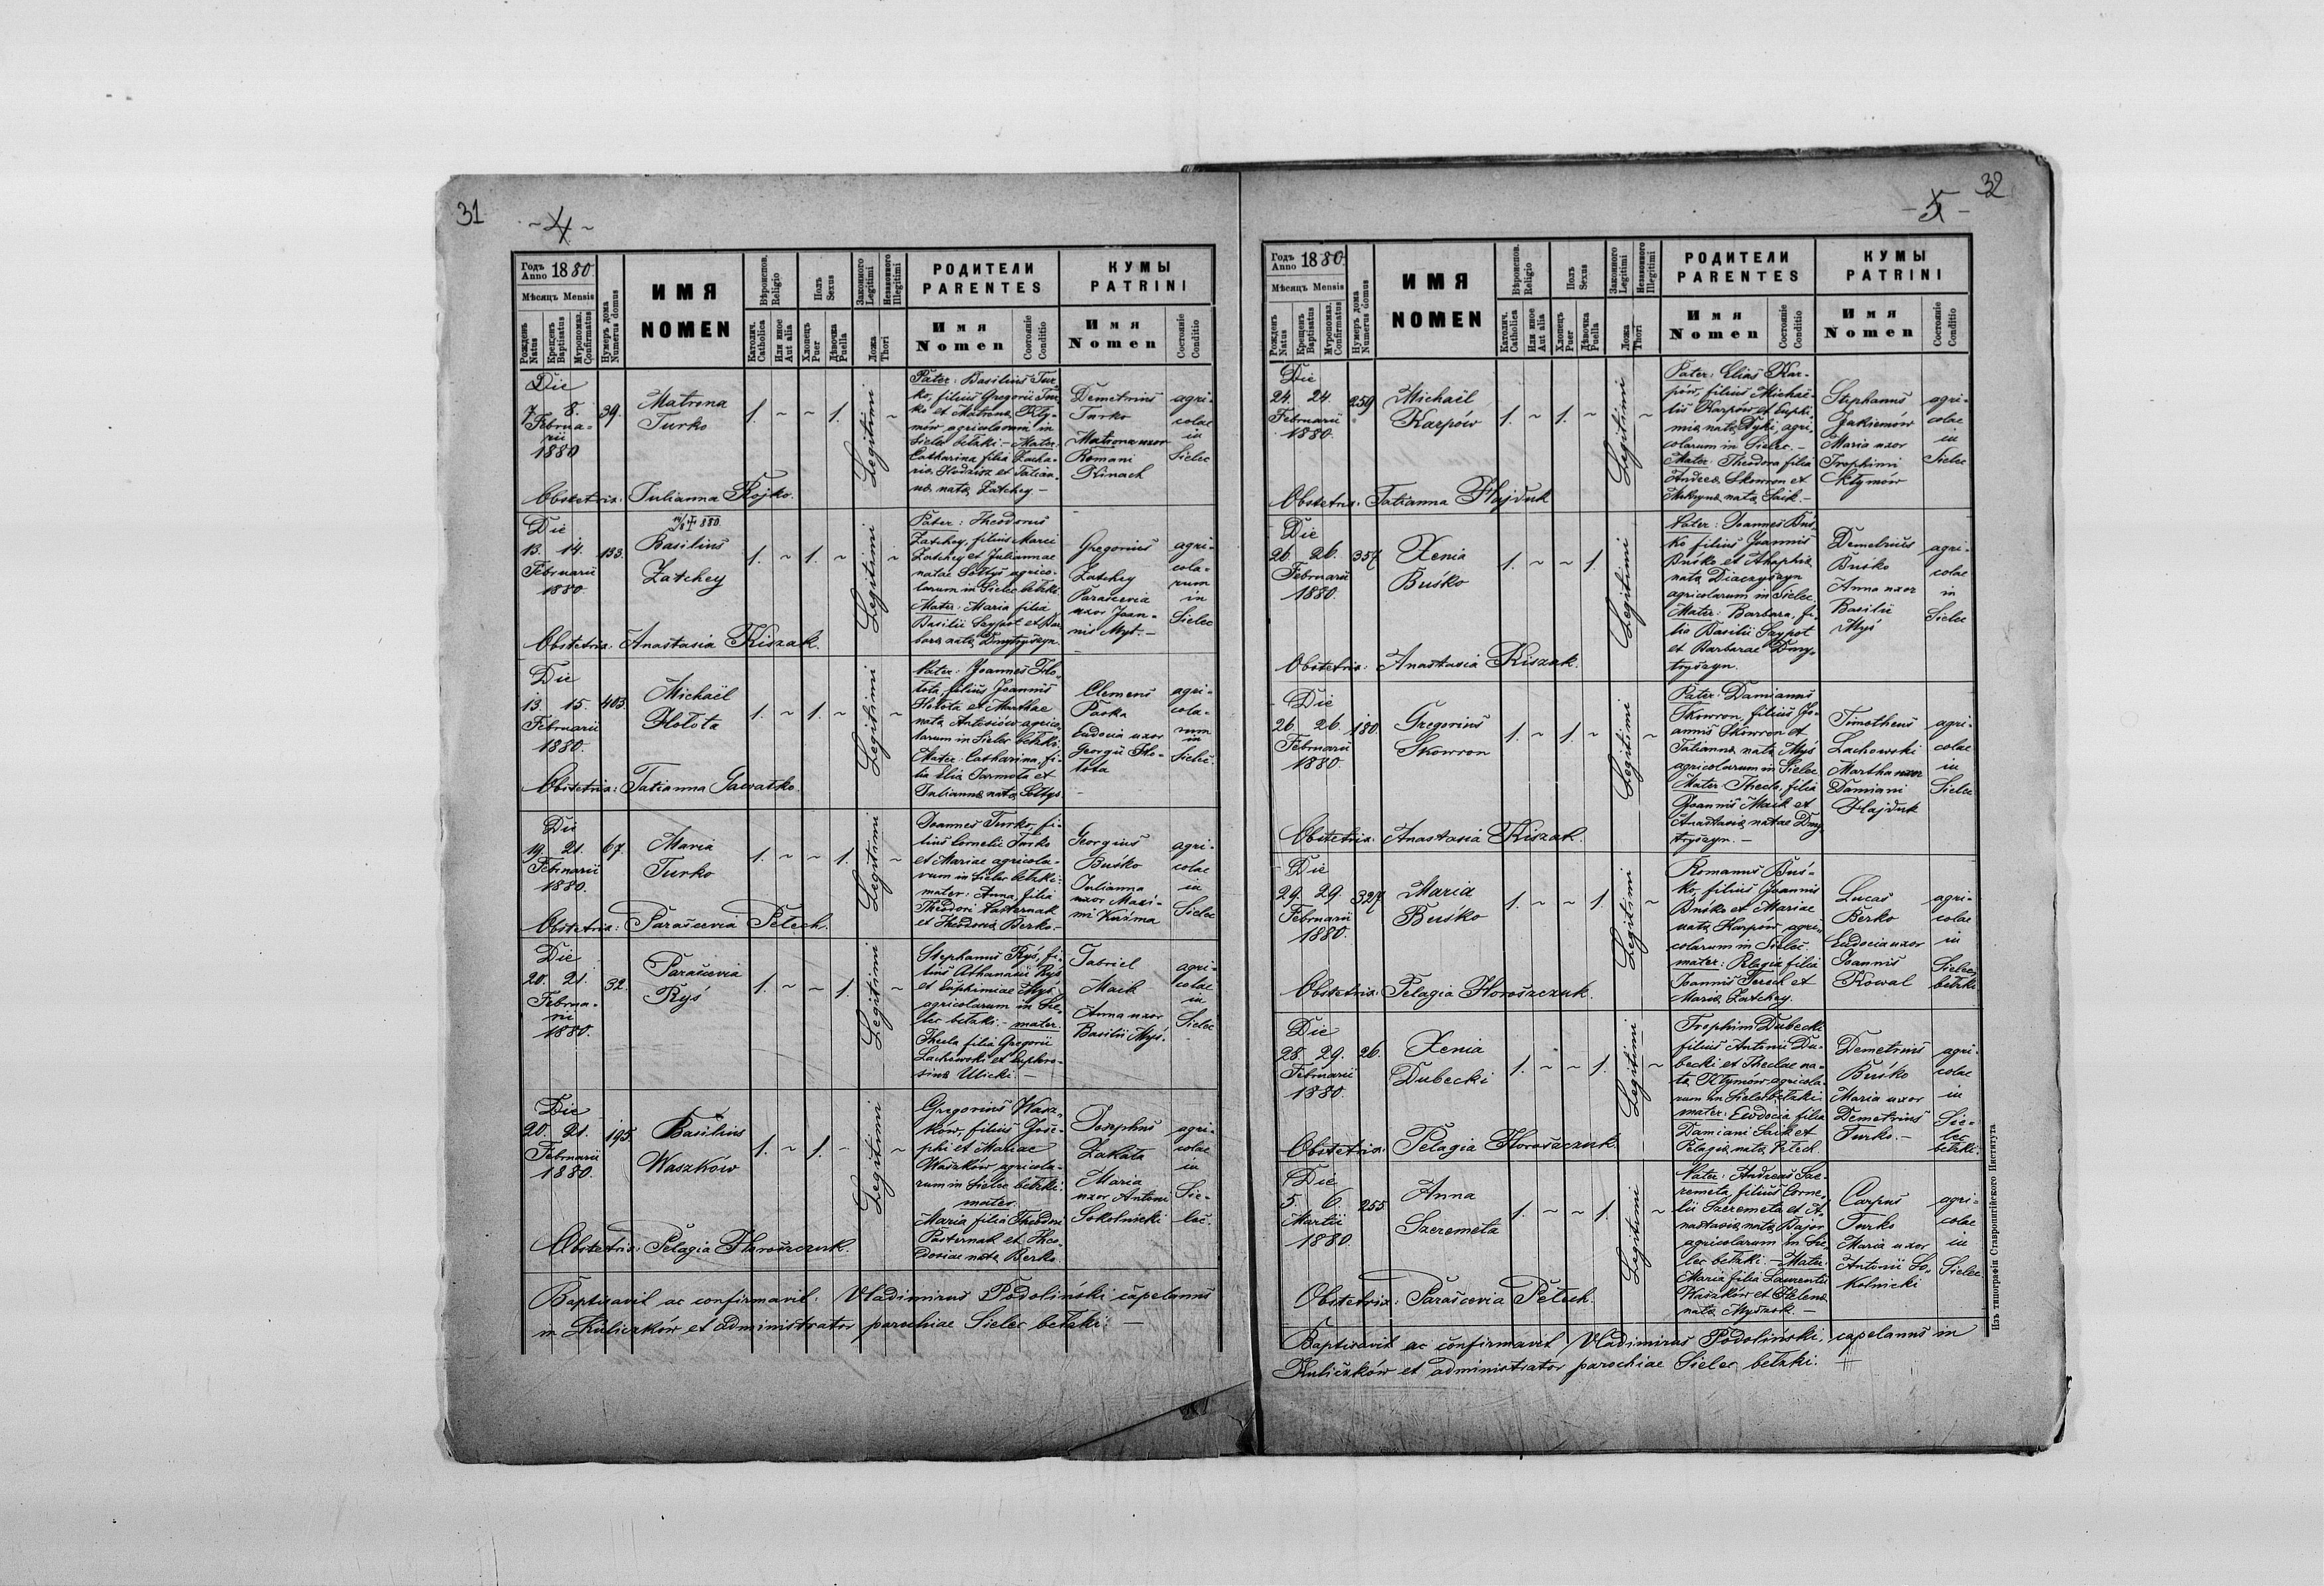 31
~ 4 ~
Годъ Anno 1880.
Мѣсяцъ Mensis
Рожденъ Natus
Крещенъ Baptisatus
Мѵропомаз. Confirmatus
Нумеръ дома Numerus domus
ИМЯ NOMEN
Вѣроиспов. Religio
Католич. Catholica
Или иное Aut alia
Полъ Sexus
Хлопець Puer
Дѣвочка Puella
Законного Legitimi
Незаконного Illegitimi
Ложа Thori
РОДИТЕЛИ PARENTES
Имя Nomen
Состояніе Conditio
КУМЫ PATRINI
Имя Nomen
Состояніе Conditio
Die
7. 8.
Februa-
rii
1880
39.
Matrona
Turko
1. ~ ~ 1.
Legitimi
~
Pater: Basilius Tur-
ko, filius Gregorii Tur-
ko et Matrona Kly-
mów agricolarum in
Sielec bełzki. - Mater:
Catharina filia Zacha-
riae Hodzisz et Tatian-
nae natae Zatchey. -
Demetrius
Turko
Matrona uxor
Romani
Kinach
agri-
colae
in
Sielec
Obstetrix: Julianna Kojko.
Die
13. 14.
Februarii
1880
133.
Basilius
Zatchey
1. ~ 1. ~
Legitimi
~
Pater: Theodorus
Zatchey, filius Marci
Zatchey et Juliannae
natae Sołtys agrico-
larum in Sielec bełzki.
Mater: Maria filia
Basilii Szypot et Bar-
barae natae Dmytryszyn
Gregorius
Zatchey
Parascevia
uxor Joan-
nis Myś. -
agri-
cola-
rum
in
Sielec
Obstetrix: Anastasia Kiszak.
Die
13. 15.
Februarii
1880.
403.
Michaël
Hołota
1. ~ 1. ~
Legitimi
~
Pater: Joannes Ho-
łota, filius Joannis
Hołota et Marthae
nata Antosiów agrico-
larum in Sielec bełzki.
Mater: Catharina, fi-
lia Eliae Jarmoła et
Juliannae natae Sołtys.
Clemens
Paska
Eudocia uxor
Georgii Ho-
łota
agri-
cola-
rum
in
Sielec.
Obstetrix: Tatianna Gawatko.
Die
19. 21.
Februarii
1880.
67.
Maria
Turko
1. ~ ~ 1.
Legitimi
~
Joannes Turko, fi-
lius Cornelii Turko
et Mariae agricola-
rum in Sielec bełzki.
mater: Anna filia
Theodori Pasternak
et Theodorae Berko. -
Georgius
Buśko
Julianna
uxor Maxi-
mi Kuźma
agri-
colae
in
Sielec
Obstetrix: Parascevia Petech.
Die
20. 21.
Februa-
rii
1880.
32.
Parascevia
Ryś
1. ~ ~ 1.
Legitimi
~
Stephanus Ryś, fi-
lius Athanasii Ryś
et Euphimiae Myś
agricolarum in Sie-
lec bełzki. - mater.
Thecla filia Gregorii
Lachowski et Euphro-
sinae Ulicki. -
Gabriel
Mack
Anna uxor
Basilii Myś.
agri-
colae
in
Sielec
Die
20. 21.
Februarii
1880.
195.
Basilius
Waszków
1. ~ 1. -
Legitimi
~
Gregorius Wasz-
ków, filius Jose-
phi et Mariae
Waszków agricola-
rum in Sielec bełzki.
mater.
Maria filia Theodori
Pasternak et Theo-
dosiae nata Berko.
Josephus
Zakłata
Maria
uxor Antoni
Sokolnicki
agri-
colae
in
Sie-
lec.
Obstetrix: Pelagia Horoszczuk.
Baptisavit ac confirmavit: Vladimirus Podoliński capelanus
in Kuliczków et administrator parochiae Sielec bełzki. -
32
- 5 -
Годъ Anno 1880.
Мѣсяцъ Mensis
Рожденъ Natus
Крещенъ Baptisatus
Мѵропомаз. Confirmatus
Нумеръ дома Numerus domus
ИМЯ NOMEN
Вѣроиспов. Religio
Католич. Catholica
Или иное Aut alia
Полъ Sexus
Хлопець Puer
Дѣвочка Puella
Законного Legitimi
Незаконного Illegitimi
Ложа Thori
РОДИТЕЛИ PARENTES
Имя Nomen
Состояніе Conditio
КУМЫ PATRINI
Имя Nomen
Состояніе Conditio
Die
24. 24.
Februarii
1880.
259
Michaël
Karpów
1. ~ 1. ~
Legitimi
~
Pater: Elias Kar-
pów, filius Michaë-
lis Karpów et Euphi-
miae nata Dyki, agri-
colarum in Sielec. -
Mater: Theodora filia
Andreae Skowron et
nata Saik. -
Stephanus
Jakimów
Maria uxor
Trophimi
Kłymów
agri-
colae
in
Sielec
Obstetrix: Tatianna Hajduk
Die
26. 26.
Februarii
1880.
357.
Xenia
Buśko
1. ~ ~ 1.
Legitimi
Pater: Joannes Buś-
ko filius Joannis
Buśko et Ahaphiae
nata Diaczyszyn
agricolarum in Sielec.
Mater: Barbara, fi-
lia Basilii Szypot
et Barbarae Dmy-
tryszyn.
Demetrius
Buśko
Anna uxor
Basilii
Myś
agri-
colae
in
Sielec
Obstetrix: Anastasia Kiszak.
Die
26. 26.
Februarii
1880.
180.
Gregorius
Skowron
1. ~ 1. ~
Legitimi
~
Pater: Damianus
Skowron, filius Jo-
annis Skowron et
Tatianna nata Myś
agricolarum in Sielec.
Mater: Thecla, filia
Joannis Mack et
Anastasiae natae Dmy-
tryszyn. -
Timotheus
Lachowski
Martha uxor
Damiani
Hajduk
agri-
colae
in
Sielec
Obstetrix: Anastasia Kiszak.
Die
29. 29.
Februarii
1880.
327.
Maria
Buśko
1. ~ ~ 1.
Legitimi
~
Romanus Buś-
ko, filius Joannis
Buśko et Mariae
nata Karpów agri-
colarum in Sielec.
mater: Pelagia filia
Joannis Fersch et
Maria Zatchey.
Lucas
Berko
Eudocia uxor
Joannis
Kowal
agri-
colae
in
Sielec
bełzki
Obstetrix: Pelagia Horoszczuk.
Die
28. 29.
Februarii
1880.
26.
Xenia
Dubecki
1. ~ ~ 1.
Legitimi
~
Trophim Dubecki
filius Antonii Du-
becki et Theclae na-
ta Kłymów agricola-
rum in Sielec bełzki.
mater: Ewdocia filia
Damiani Saik et
Pelagiae nata Petech.
Demetrius
Buśko
Maria uxor
Demetrius
Turko. -
agri-
colae
in
Sie-
lec
bełzki.
Obstetrix: Pelagia Horoszczuk.
Die
5. 6.
Martii
1880.
255
Anna
Szeremeta
1. ~ ~ 1.
Legitimi
~
Pater: Andreas Sze-
remeta, filius Corne-
lii Szeremeta et A-
nastasiae nata Bajor
agricolarum in Sie-
lec bełzki. - Mater:
Maria filia Laurentii
Waszków et Helenae
nata Myszak. -
Carpus
Turko
Maria uxor
Antonii So-
kolnicki
agri-
colae
in
Sielec
Obstetrix: Parascevia Petech.
Baptisavit ac confirmavit Vladimirus Podoliński, capelanus in
Kuliczków et administrator parochiae Sielec bełzki.
Изъ типографіи Ставропигійского Института